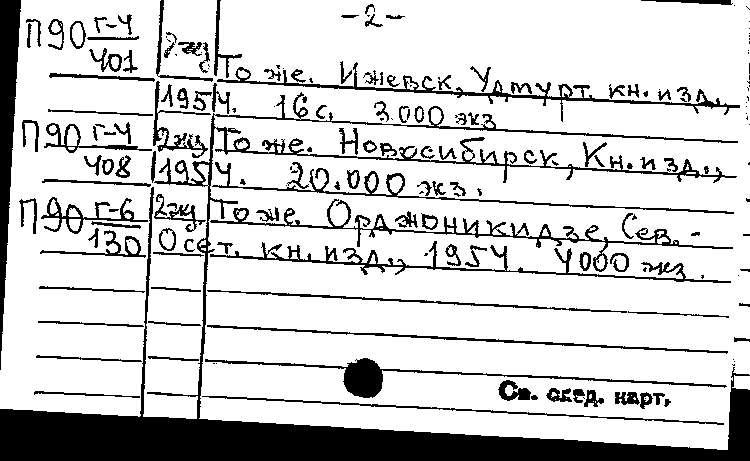 -2-
П90 Г-4/401 2экз То же. Ижевск, Удмурт. кн. изд.,
1954. 16 с. 3.000 экз
П90 Г-4/408 2экз То же. Новосибирск, Кн. изд.,
1954. 20.000 экз.
П90 Г-6/130 2экз. То же. Орджоникидзе, Сев.-
Осет. кн. изд., 1954. 4000 экз.
См. след. карт.